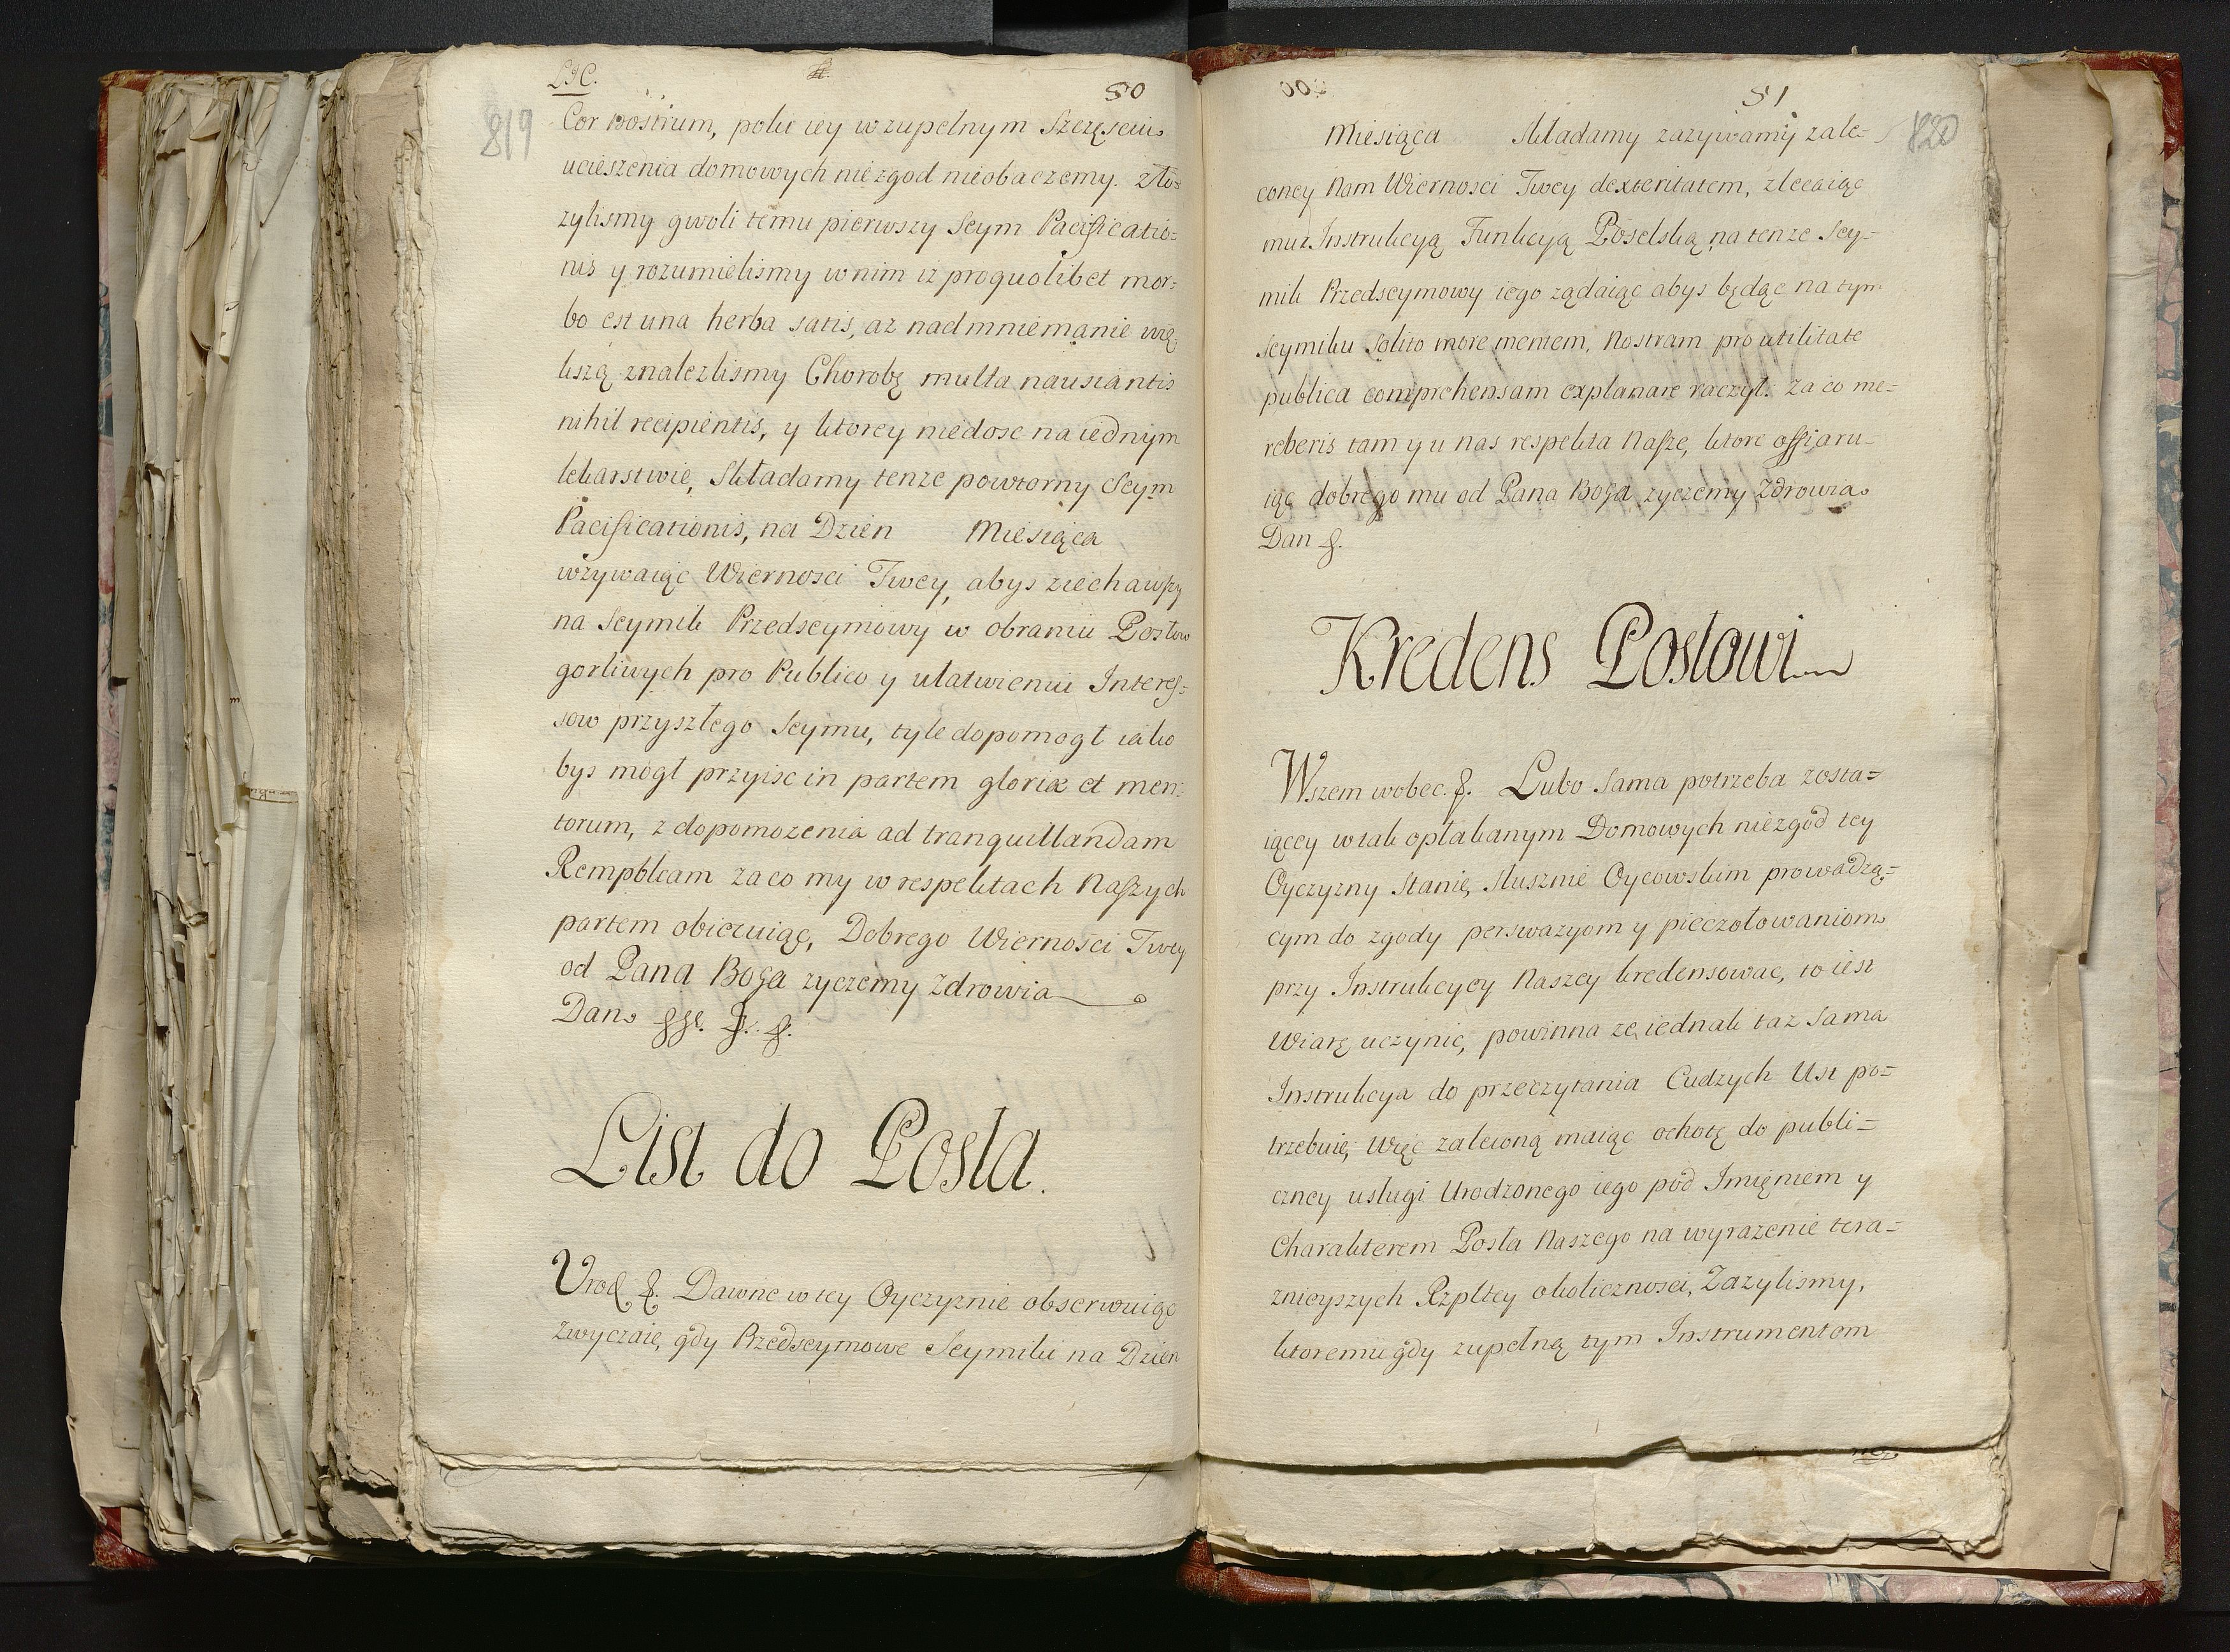 LJC.
80
819
Cor nostrum, poki iey w zupełnym Szczęsciu
ucieszenia domowych niezgod nieobaczemy. zło=
zylismy gwoli temu pierwszy Seym Pacificatio=
nis y rozumielismy w nim iz pro quolibet mor=
bo est una herba satis, az nad mniemanie wię=
kszą znalezlismy Chorobę multa nauseantis
nihil recipientis, y ktorey niedosc na iednym
lekarstwie, Składamy tenze powtorny Seym
Pacificationis, na Dzien Miesiąca
wzywaiąc Wiernosci Twey, abys ziechawszy
na Seymik Przedseymowy w obraniu Posłow
gorliwych pro Publico y ułatwieniu Interes=
sow przyszłego Seymu, tyle dopomogł iako
bys mogł przyisc in partem gloriæ et meri=
torum, z dopomozenia ad tranquillandam
Rempblcam za co my w respektach Naszych
partem obiecuiąc, Dobrego Wiernosci Twey
od Pana Boga zyczemy Zdrowia
Dan
List do Posła.
Urod &. Dawne w tey Oyczyznie obserwuiąc
zwyczaie, gdy Przedseymowe Seymiki na Dzien
81
820
Miesiąca Składamy zazywamy zale=
coney Nam Wiernosci Twey dexteritatem, zlecaiąc
mu z Instrukcyą Funkcyą Poselską na tenze Sey=
mik Przedseymowy iego ządaiąc abys będąc na tym
Seymiku solito more mentem, Nostram pro utilitate
publica comprehensam explanare raczył. za co me=
reberis tam y u nas respekta Nasze, ktore offiaru=
iąc dobrego mu od Pana Boga zyczemy Zdrowia
Dan &.
Kredens Posłowi
Wszem wobec. &. Lubo Sama potrzeba zosta=
iącey w tak opłakanym Domowych niezgod tey
Oyczyzny Stanie, słusznie Oycowskim prowadzą=
cym do zgody perswazyom y pieczołowaniom
przy Instrukcycy Naszey kredensowac, to iest
Wiarę uczynic, powinna ze iednak taz Sama
Instrukcya do przeczytania Cudzych Ust po=
trzebuie, Więc zaleconą maiąc ochotę do publi=
czney usługi Urodzonego iego pod Imięniem y
Charakterem Posła Naszego na wyrazenie tera=
znieyszych Rzpltey okolicznosci, Zazylismy,
ktoremu gdy zupełną tym Instrumentom